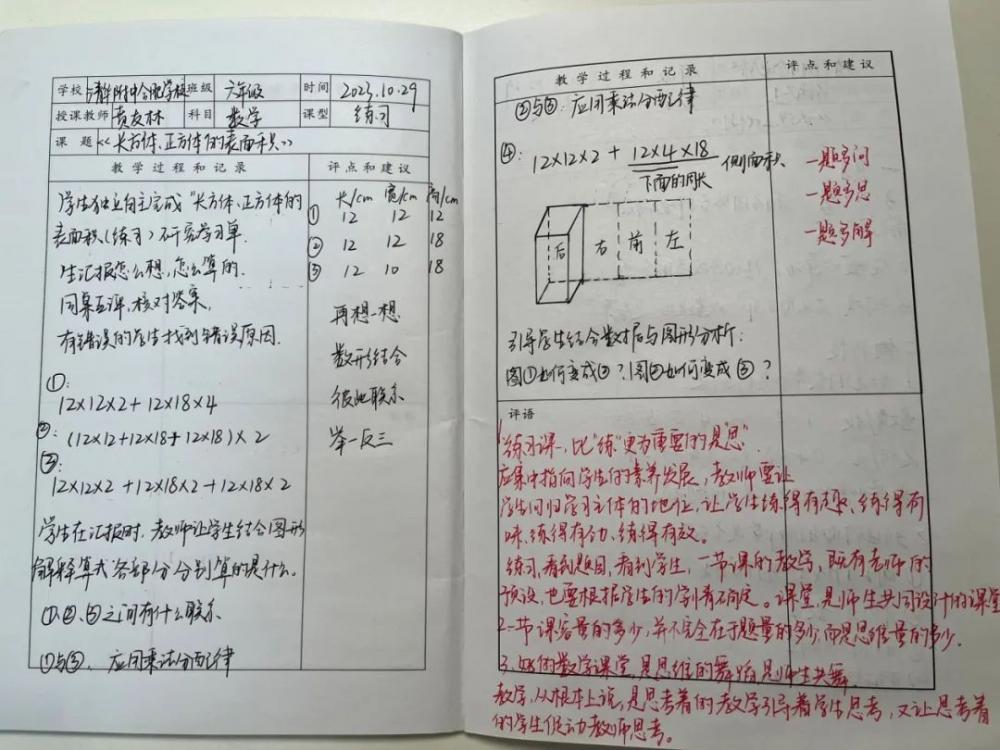 学校 清华附中合肥学校 班级 六年级 时间 2023.10.29
授课教师 黄友林 科目 数学 课型 练习
课题 《长方体、正方体的表面积》
教学过程和记录 评点和建议
学生独立自主完成“长方体、正方体的
表面积(练习)研究学习单.
生汇报怎么想,怎么算的.
同桌互评,核对答案,
有错误的学生找到错误原因.
①:
12×12×2+12×18×4
②:(12×12+12×18+12×18)×2
③:
12×12×2+12×18×2+12×18×2
学生在汇报时,教师让学生结合图形
解释算式各部分分别算的是什么。
①、②、③之间有什么联系
①与③,应用乘法分配律
长/cm 宽/cm 高/cm
① 12 12 12
② 12 12 18
③ 12 10 18
再想一想
数形结合
彼此联系
举一反三
教学过程和记录 评点和建议
②与③:应用乘法分配律
④:12×12×2+12×4×18 侧面积
下面的周长
后 右 前 左
引导学生结合数据与图形分析:
图①如何变成②?图②如何变成③?
一题多问
一题多思
一题多解
评语
1.练习课,比“练”更为重要的是“思”
应集中指向学生的素养发展,教师要让
学生回归学习主体的地位,让学生练得有趣、练得有
味、练得有劲、练得有效。
练习,看到题目,看到学生,一节课的教学,既有老师的
预设,也要根据学生的学情不确定。课堂,是师生共同设计的课堂
2.一节课容量的多少,并不完全在于题量的多少,而是思维量的多少.
3.好的数学课堂,是思维的舞蹈,是师生共舞.
教学,从根本上说,是思考着的教学引导着学生思考,又让思考着
的学生促动教师思考。